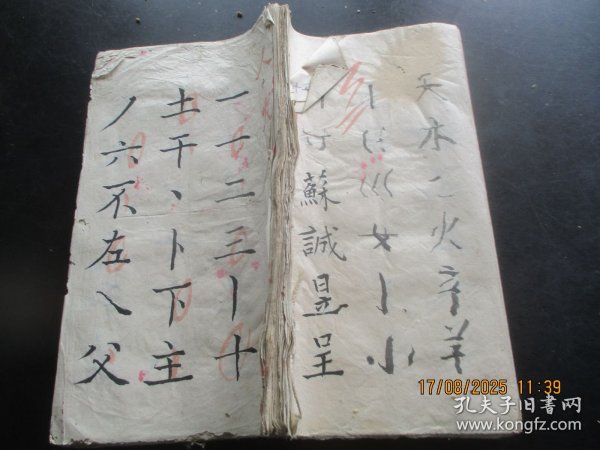 木二火辛羊
巛女亅小
寸蘇誠呈
一二三丨十
土干丶卜下主
丿六不左乀父
17/08/2025 11:39
孔夫子旧書网
www.kongfz.com